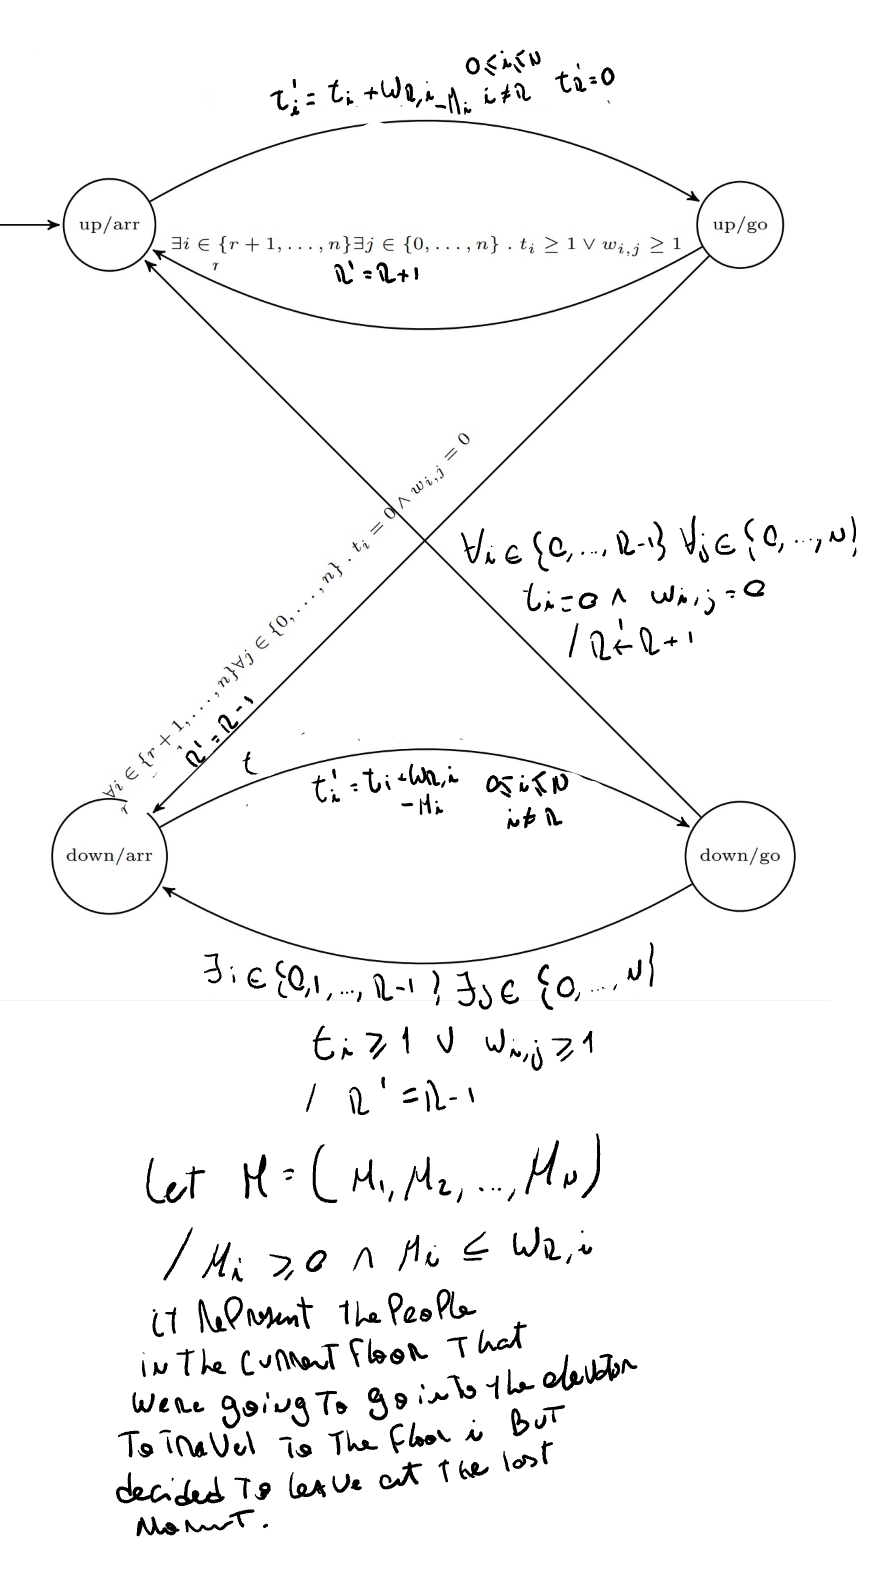 0≤i≤N
t'i = ti + wR,i - Mi i≠R t'R=0
up/arr
up/go
∃i ∈ {r + 1, . . . , n}∃j ∈ {0, . . . , n} . ti ≥ 1 ∨ wi,j ≥ 1
r
R' = R+1
∀i ∈ {r + 1, . . . , n}∀j ∈ {0, . . . , n} . ti = 0 ∧ wi,j = 0
r
R' = R-1
∀i ∈ {0, ..., R-1} ∀j ∈ {0, ..., N}
ti=0 ∧ wi,j = 0
/ R' ← R+1
t
t'i = ti + wR,i 0≤i≤N
-Mi i≠R
down/arr
down/go
∃i ∈ {0,1, ..., R-1} ∃j ∈ {0, ..., N}
ti ≥ 1 ∨ wi,j ≥ 1
/ R' = R-1
Let M = (M1, M2, ..., MN)
/ Mi ≥ 0 ∧ Mi ≤ wR,i
it RePresent the PeoPle
in The current Floor That
were going To go into the elevator
To Travel To The Floor i BuT
decided To leave at The last
MomenT.